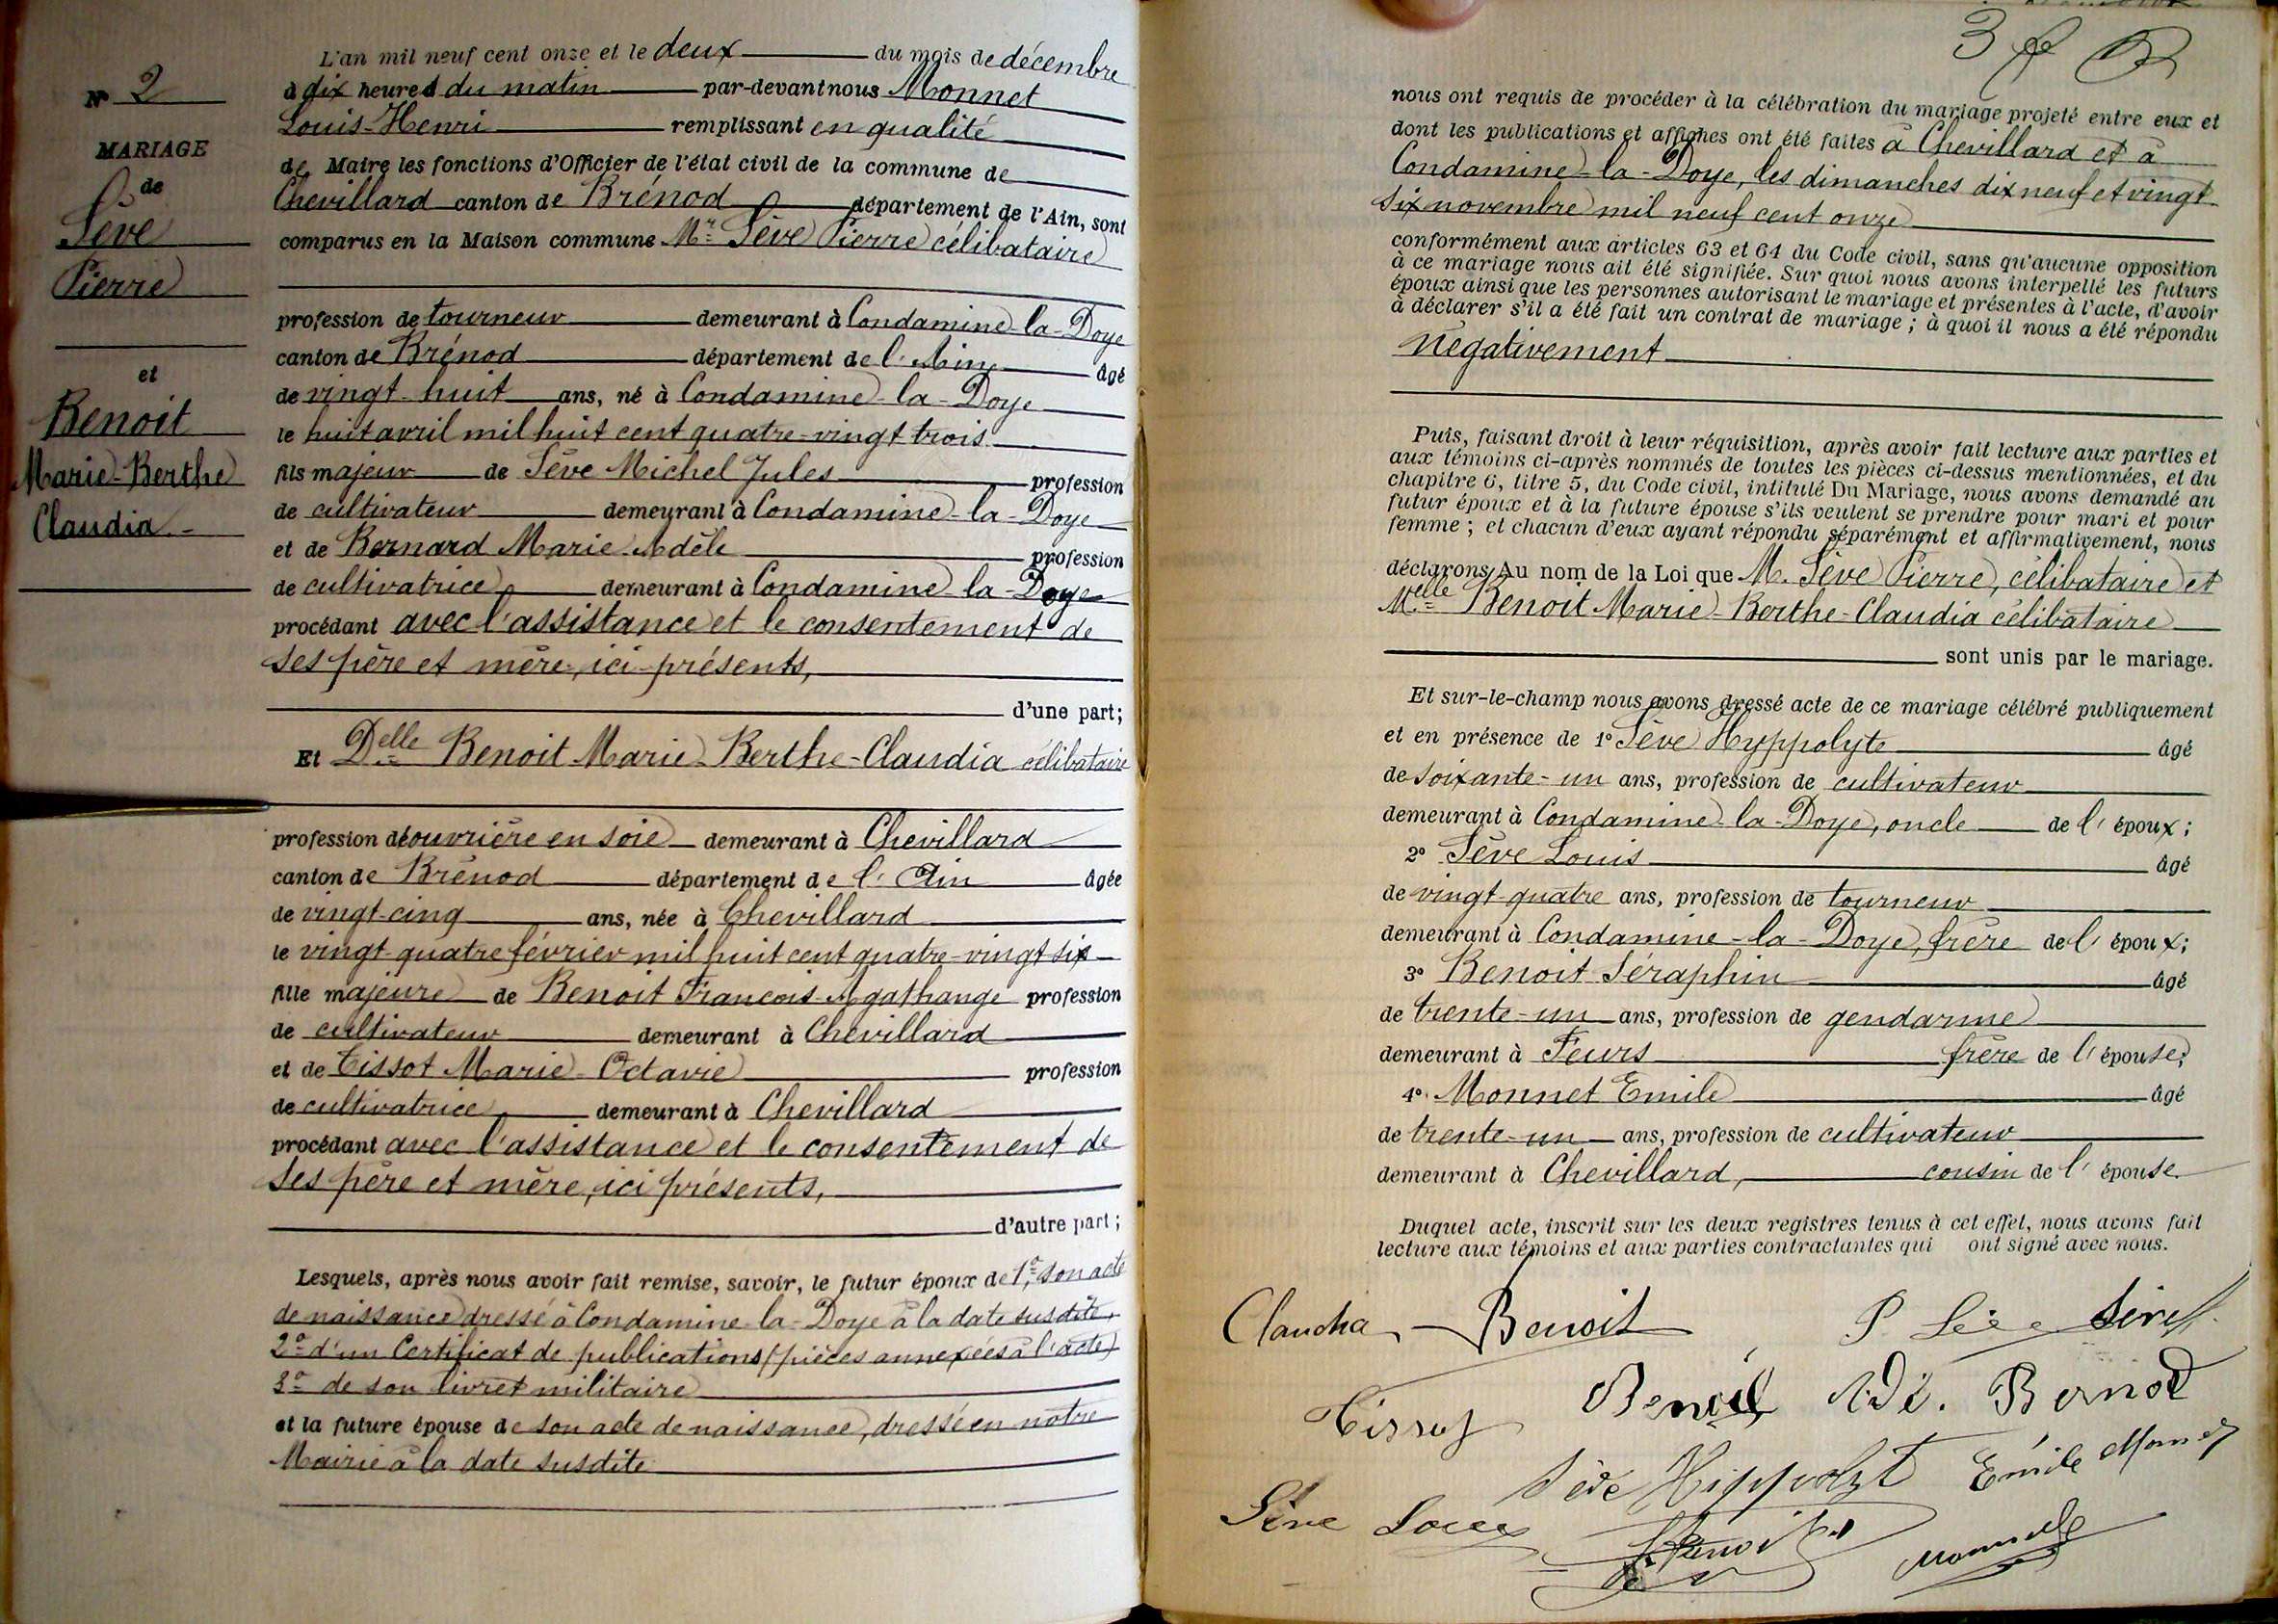 N° 2
MARIAGE
de
Sève
Pierre
et
Benoit
Marie-Berthe
Claudia
L'an mil neuf cent onze et le deux du mois de décembre
à dix heures du matin par-devant nous Monnet
Louis-Henri remplissant en qualité
de Maire les fonctions d'Officier de l'état civil de la commune de
Chevillard canton de Brénod département de l'Ain, sont
comparus en la Maison commune Mr Sève Pierre célibataire
profession de tourneur demeurant à Condamine-la-Doye
canton de Brénod département de l'Ain âgé
de vingt-huit ans, né à Condamine-la-Doye
le huit avril mil huit cent quatre-vingt trois
fils majeur de Sève Michel Jules profession
de cultivateur demeurant à Condamine-la-Doye
et de Bernard Marie-Adèle profession
de cultivatrice demeurant à Condamine-la-Doye
procédant avec l'assistance et le consentement de
ses père et mère, ici présents,
d'une part;
Et Delle Benoit Marie-Berthe-Claudia célibataire
profession de ouvrière en soie demeurant à Chevillard
canton de Brénod département de l'Ain âgée
de vingt-cinq ans, née à Chevillard
le vingt-quatre février mil huit cent quatre-vingt six
fille majeure de Benoit François-Agathange profession
de cultivateur demeurant à Chevillard
et de Tissot Marie-Octavie profession
de cultivatrice demeurant à Chevillard
procédant avec l'assistance et le consentement de
ses père et mère, ici présents,
d'autre part;
Lesquels, après nous avoir fait remise, savoir, le futur époux de 1° son acte
de naissance dressé à Condamine-la-Doye à la date susdite,
2° d'un Certificat de publications (pièces annexées à l'acte)
3° de son livret militaire
et la future épouse de son acte de naissance, dressé en notre
Mairie à la date susdite
3 f
nous ont requis de procéder à la célébration du mariage projeté entre eux et
dont les publications et affiches ont été faites à Chevillard et à
Condamine-la-Doye, les dimanches dix neuf et vingt
six novembre mil neuf cent onze
conformément aux articles 63 et 64 du Code civil, sans qu'aucune opposition
à ce mariage nous ait été signifiée. Sur quoi nous avons interpellé les futurs
époux ainsi que les personnes autorisant le mariage et présentes à l'acte, d'avoir
à déclarer s'il a été fait un contrat de mariage; à quoi il nous a été répondu
négativement
Puis, faisant droit à leur réquisition, après avoir fait lecture aux parties et
aux témoins ci-après nommés de toutes les pièces ci-dessus mentionnées, et du
chapitre 6, titre 5, du Code civil, intitulé Du Mariage, nous avons demandé au
futur époux et à la future épouse s'ils veulent se prendre pour mari et pour
femme; et chacun d'eux ayant répondu séparément et affirmativement, nous
déclarons Au nom de la Loi que M. Sève Pierre, célibataire et
Melle Benoit Marie-Berthe-Claudia célibataire
sont unis par le mariage.
Et sur-le-champ nous avons dressé acte de ce mariage célébré publiquement
et en présence de 1° Sève Hyppolyte âgé
de soixante-un ans, profession de cultivateur
demeurant à Condamine-la-Doye, oncle de l'époux;
2° Sève Louis âgé
de vingt quatre ans, profession de tourneur
demeurant à Condamine-la-Doye, frère de l'époux;
3° Benoit Séraphin âgé
de trente-un ans, profession de gendarme
demeurant à Feurs frère de l'épouse;
4° Monnet Emile âgé
de trente-un ans, profession de cultivateur
demeurant à Chevillard, cousin de l'épouse.
Duquel acte, inscrit sur les deux registres tenus à cet effet, nous avons fait
lecture aux témoins et aux parties contractantes qui ont signé avec nous.
Claudia Benoit P. Sève Sève
Tissot Benoit Adè. Bernod
Sève Hippolyt Emile Monnet
Sève Louis
Benoit Monnet